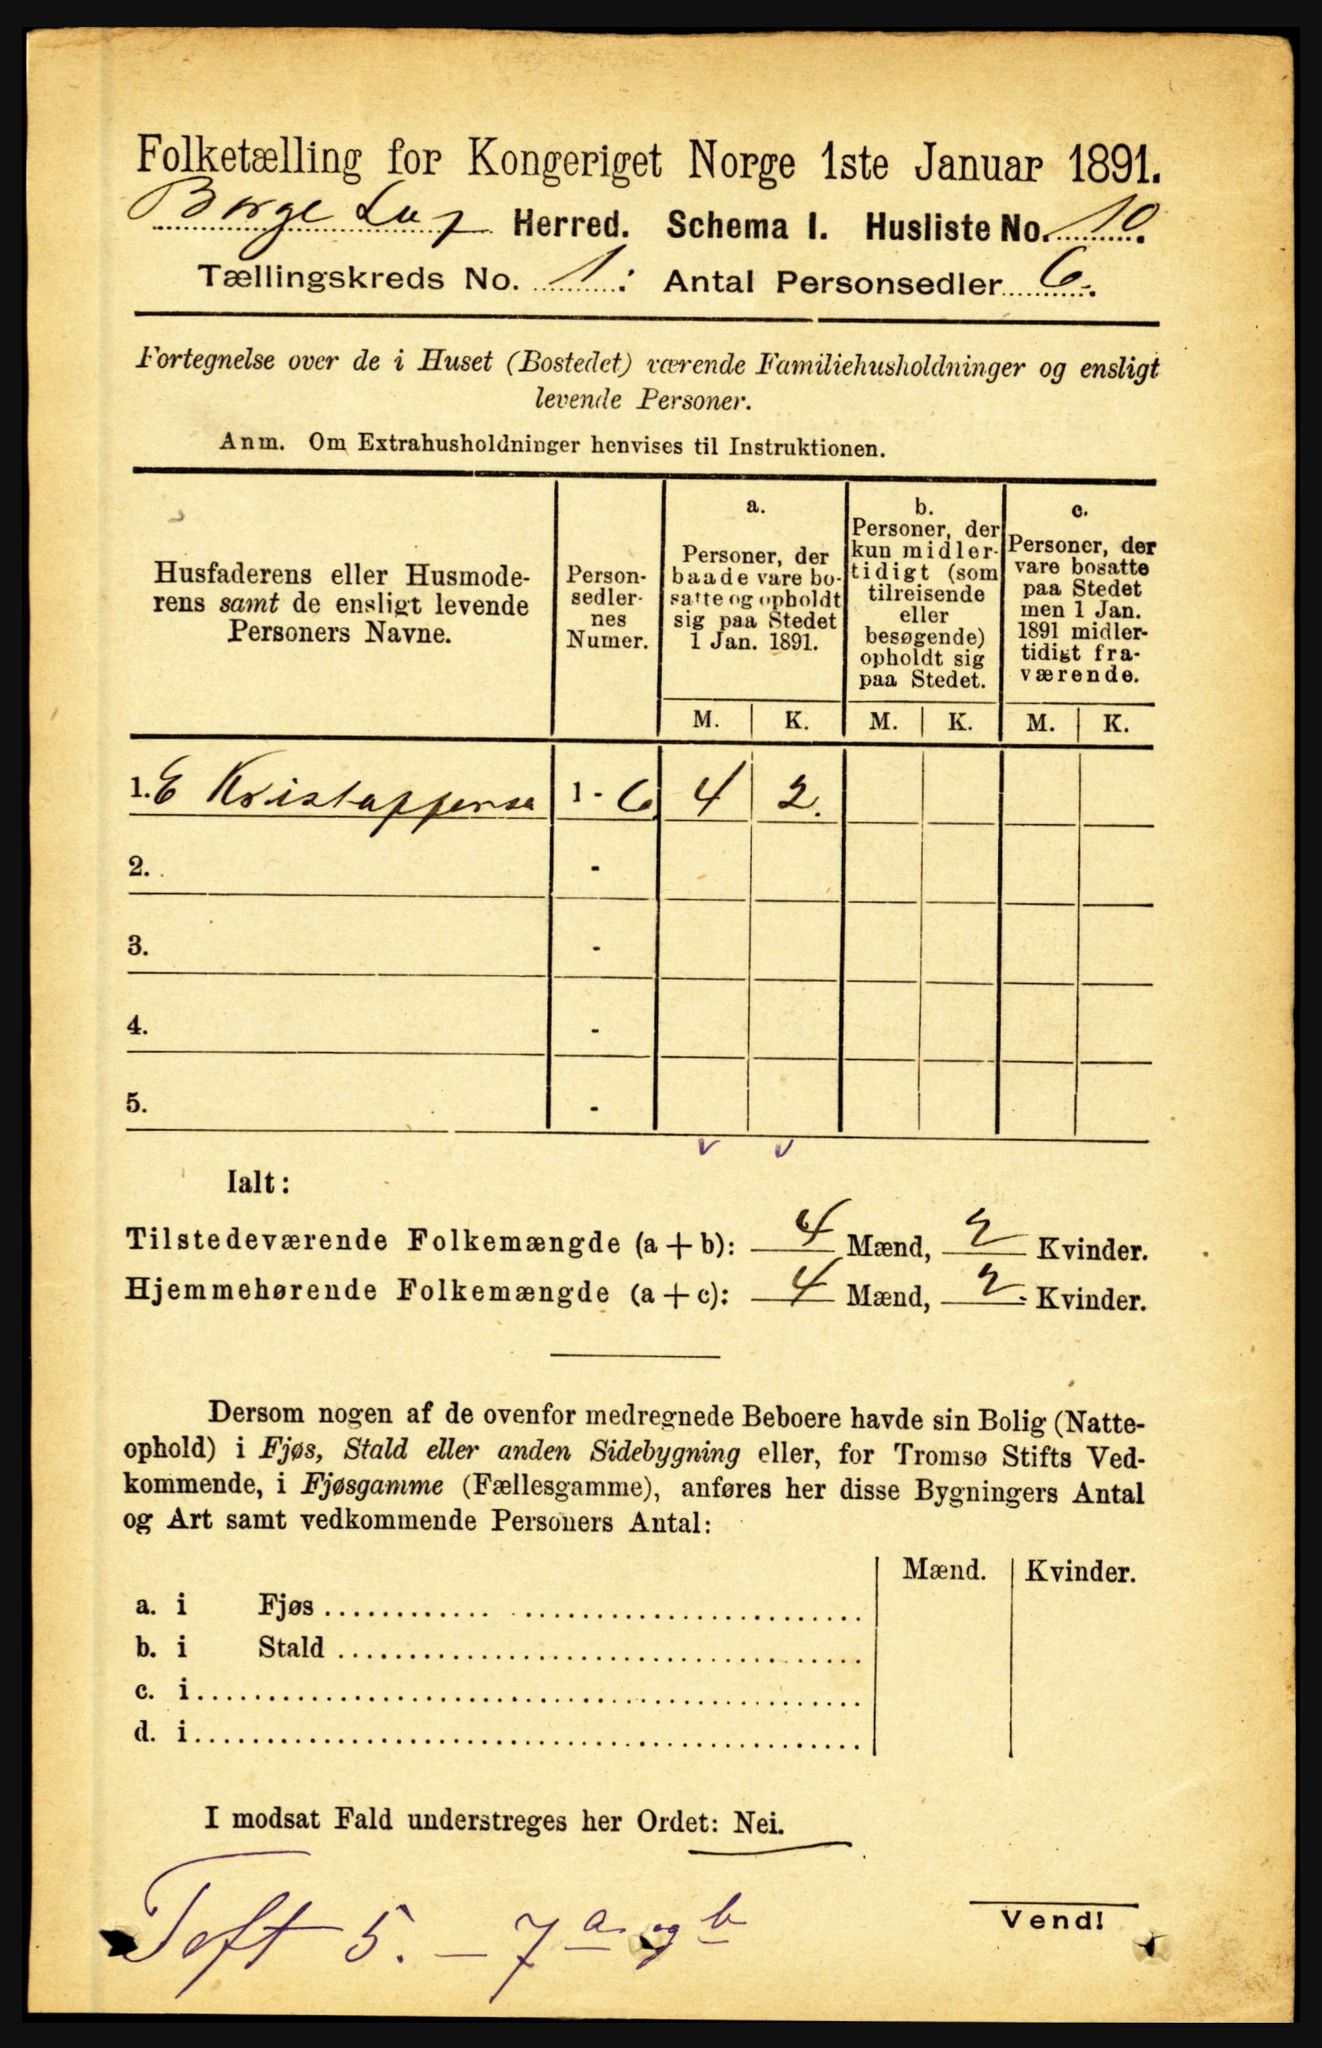 Folketælling for Kongeriget Norge 1ste Januar 1891.
Borge Herred. Schema I. Husliste No. 10.
Tællingskreds No. 1: Antal Personsedler 6.
Fortegnelse over de i Huset (Bostedet) værende Familiehusholdninger og ensligt
levende Personer.
Anm. Om Extrahusholdninger henvises til Instruktionen.
Husfaderens eller Husmode-
rens samt de ensligt levende
Personers Navne.
Person-
sedler-
nes
Numer.
a.
Personer, der
baade vare bo-
satte og opholdt
sig paa Stedet
1 Jan. 1891.
b.
Personer, der
kun midler-
tidigt (som
tilreisende
eller
besøgende)
opholdt sig
paa Stedet.
c.
Personer, der
vare bosatte
paa Stedet
men 1 Jan.
1891 midler-
tidigt fra-
værende.
M. K. M. K. M. K.
1. E Kristoffersen 1 - 6 4 2.
2. -
3. -
4. -
5. -
Ialt:
Tilstedeværende Folkemængde (a + b): 4 Mænd, 2 Kvinder.
Hjemmehørende Folkemængde (a + c): 4 Mænd, 2. Kvinder.
Dersom nogen af de ovenfor medregnede Beboere havde sin Bolig (Natte-
ophold) i Fjøs, Stald eller anden Sidebygning eller, for Tromsø Stifts Ved-
kommende, i Fjøsgamme (Fællesgamme), anføres her disse Bygningers Antal
og Art samt vedkommende Personers Antal:
Mænd. Kvinder.
a. i Fjøs
b. i Stald
c. i
d. i
I modsat Fald understreges her Ordet: Nei.
Vend!
Toft 5. - 7 a og b